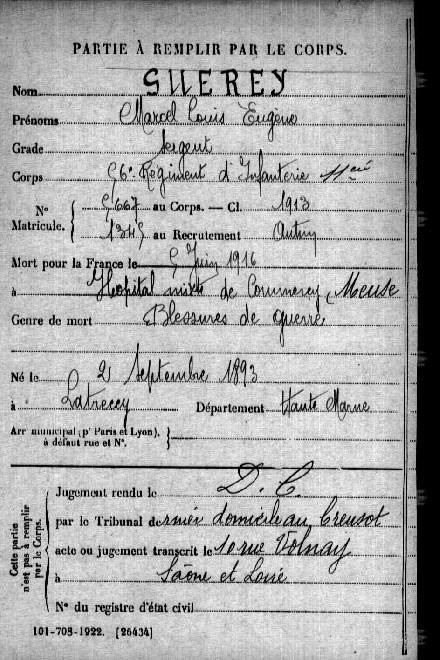 PARTIE À REMPLIR PAR LE CORPS.
Nom SUEREY
Prénoms Marcel Louis Eugène
Grade Sergent
Corps 56e Régiment d'Infanterie 11e Cie
N° Matricule. { 5667 au Corps. — Cl. 1913
1345 au Recrutement Autun
Mort pour la France le 5 Juin 1916
à Hopital mixte de Commercy (Meuse
Genre de mort Blessures de guerre
Né le 2 Septembre 1893
à Latrecey Département Haute Marne
Arr municipal (pr Paris et Lyon),
à défaut rue et N°.
Cette partie n'est pas à remplir par le Corps.
Jugement rendu le D. C.
par le Tribunal de domicile au Creusot
acte ou jugement transcrit le 10 rue Volnay
à Saône et Loire
N° du registre d'état civil
101-708-1922. [26434]